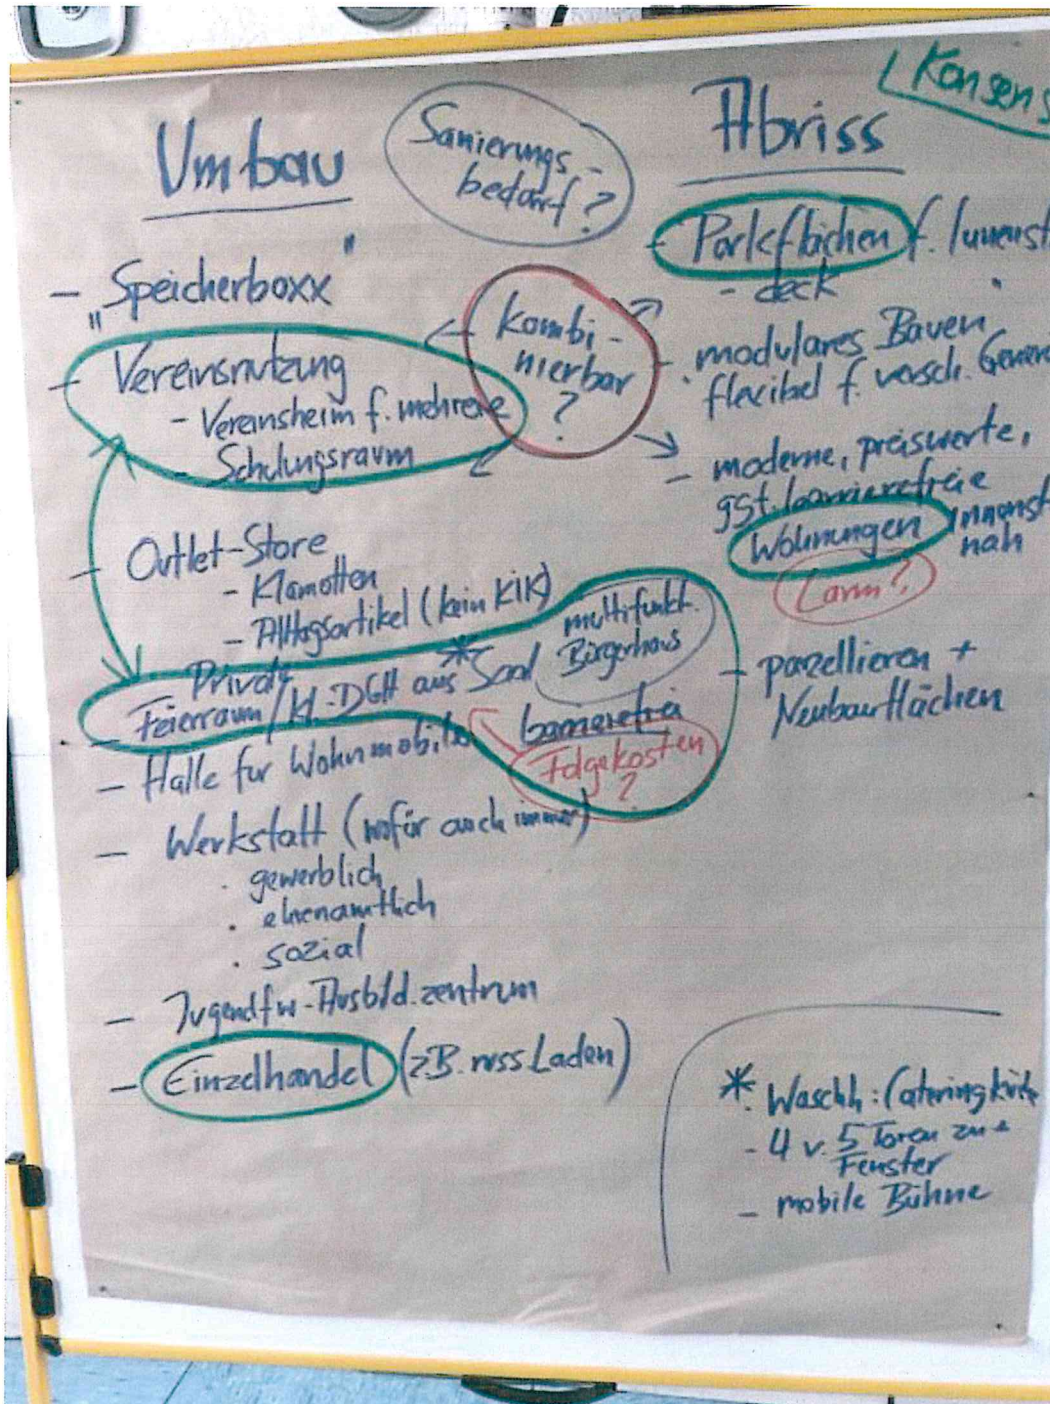 Konsens
Umbau
Sanierungs-
bedarf?
Abriss
- „Speicherboxx"
- Vereinsnutzung
- Vereinsheim f. mehrere
- Schulungsraum
Kombi-
nierbar
?
- Outlet-Store
- Klamotten
- Alltagsartikel (kein KiK)
- Private
Feierraum/kl. DGH aus Saal
*
multifunkt.
Bürgerhaus
barrierefrei
Folgekosten
?
- Halle für Wohnmobile
- Werkstatt (wofür auch immer)
· gewerblich
· ehrenamtlich
· sozial
- Jugendfw-Ausbild.zentrum
- Einzelhandel (z.B. russ. Laden)
- Parkflächen f.
- deck
- modulares Bauen
· flexibel f. versch.
- moderne, preiswerte,
gst. barrierefreie
Wohnungen
nah
Lärm?
- parzellieren +
Neubauflächen
* Waschh: Cateringküche
- 4 v. 5 Toren zu
Fenster
- mobile Bühne